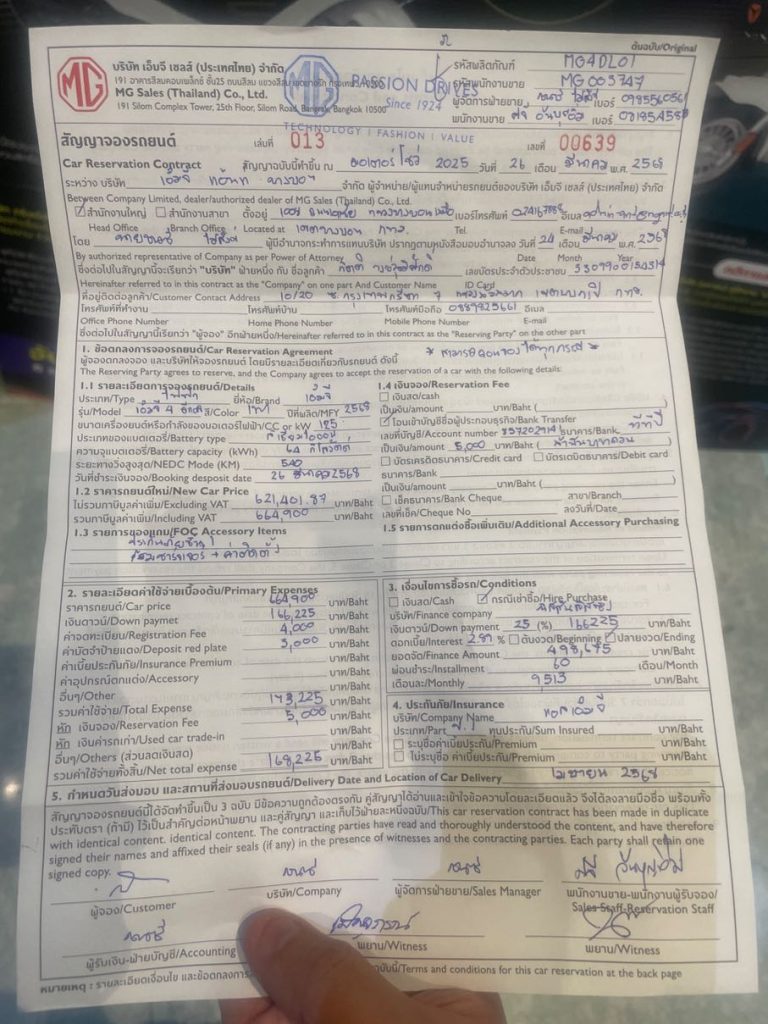 ต้นฉบับ/Original
MG
บริษัท เอ็มจี เซลส์ (ประเทศไทย) จำกัด
191 อาคารสีลมคอมเพล็กซ์ ชั้น25 ถนนสีลม แขวงสีลม
MG Sales (Thailand) Co., Ltd.
191 Silom Complex Tower, 25th Floor, Silom Road, Bangrak, Bangkok 10500
PASSION DRIVES
Since 1924
TECHNOLOGY | FASHION | VALUE
รหัสผลิตภัณฑ์ MG4DL01
รหัสพนักงานขาย MG003747
ผู้จัดการฝ่ายขาย เบอร์
พนักงานขาย เบอร์
สัญญาจองรถยนต์ เล่มที่ 013 เลขที่ 00639
Car Reservation Contract สัญญาฉบับนี้ทำขึ้น ณ มอเตอร์โชว์ 2025 วันที่ 26 เดือน มีนาคม พ.ศ. 2568
ระหว่าง บริษัท เอ็มจี จำกัด ผู้จำหน่าย/ผู้แทนจำหน่ายรถยนต์ของบริษัท เอ็มจี เซลส์ (ประเทศไทย) จำกัด
Between Company Limited, dealer/authorized dealer of MG Sales (Thailand) Co., Ltd.
สำนักงานใหญ่ สำนักงานสาขา ตั้งอยู่ เบอร์โทรศัพท์ อีเมล
Head Office Branch Office Located at Tel. E-mail
โดย ผู้มีอำนาจกระทำการแทนบริษัท ปรากฏตามหนังสือมอบอำนาจลง วันที่ 24 เดือน มีนาคม พ.ศ. 2568
By authorized representative of Company as per Power of Attorney Date Month Year
ซึ่งต่อไปในสัญญานี้จะเรียกว่า "บริษัท" ฝ่ายหนึ่ง กับ ชื่อลูกค้า เลขบัตรประจำตัวประชาชน
Hereinafter referred to in this contract as the "Company" on one part And Customer Name ID Card
ที่อยู่ติดต่อลูกค้า/Customer Contact Address 10/20 ซ.กรุงเทพกรีฑา 7 เขตบางกะปิ กทม.
โทรศัพท์ที่ทำงาน โทรศัพท์บ้าน โทรศัพท์มือถือ 0889825661 อีเมล
Office Phone Number Home Phone Number Mobile Phone Number E-mail
ซึ่งต่อไปในสัญญานี้เรียกว่า "ผู้จอง" อีกฝ่ายหนึ่ง/Hereinafter referred to in this contract as the "Reserving Party" on the other part
1. ข้อตกลงการจองรถยนต์/Car Reservation Agreement
ผู้จองตกลงจอง และบริษัทให้จองรถยนต์ โดยมีรายละเอียดเกี่ยวกับรถยนต์ ดังนี้
The Reserving Party agrees to reserve, and the Company agrees to accept the reservation of a car with the following details:
1.1 รายละเอียดการจองรถยนต์/Details
ประเภท/Type ยี่ห้อ/Brand เอ็มจี
รุ่น/Model เอ็มจี 4 สี/Color เทา ปีที่ผลิต/MFY 2568
ขนาดเครื่องยนต์หรือกำลังของมอเตอร์ไฟฟ้า/CC or kW 125
ประเภทของแบตเตอรี่/Battery type
ความจุแบตเตอรี่/Battery capacity (kWh) 64 กิโลวัตต์
ระยะทางวิ่งสูงสุด/NEDC Mode (KM) 540
วันที่ชำระเงินจอง/Booking desposit date 26 มีนาคม 2568
1.2 ราคารถยนต์ใหม่/New Car Price
ไม่รวมภาษีมูลค่าเพิ่ม/Excluding VAT 621,401.87 บาท/Baht
รวมภาษีมูลค่าเพิ่ม/Including VAT 664,900 บาท/Baht
1.3 รายการของแถม/FOC Accessory Items
ประกันภัยชั้น 1
+ ค่าติดตั้ง
1.4 เงินจอง/Reservation Fee
เงินสด/cash
เป็นเงิน/amount บาท/Baht (
โอนเข้าบัญชีชื่อผู้ประกอบธุรกิจ/Bank Transfer
เลขที่บัญชี/Account number ธนาคาร/Bank ทีทีบี
เป็นเงิน/amount 5,000 บาท/Baht (ห้าพันบาทถ้วน)
บัตรเครดิตธนาคาร/Credit card บัตรเดบิตธนาคาร/Debit card
ธนาคาร/Bank
เป็นเงิน/amount บาท/Baht (
เช็คธนาคาร/Bank Cheque สาขา/Branch
เลขที่เช็ค/Cheque No ลงวันที่/Date
1.5 รายการตกแต่งซื้อเพิ่มเติม/Additional Accessory Purchasing
2. รายละเอียดค่าใช้จ่ายเบื้องต้น/Primary Expenses
ราคารถยนต์/Car price 664,900 บาท/Baht
เงินดาวน์/Down paymet 166,225 บาท/Baht
ค่าจดทะเบียน/Registration Fee 4,000 บาท/Baht
ค่ามัดจำป้ายแดง/Deposit red plate 3,000 บาท/Baht
ค่าเบี้ยประกันภัย/Insurance Premium บาท/Baht
ค่าอุปกรณ์ตกแต่ง/Accessory บาท/Baht
อื่นๆ/Other บาท/Baht
รวมค่าใช้จ่าย/Total Expense 173,225 บาท/Baht
หัก เงินจอง/Reservation Fee 5,000 บาท/Baht
หัก เงินค่ารถเก่า/Used car trade-in บาท/Baht
อื่นๆ/Others (ส่วนลดเงินสด) บาท/Baht
รวมค่าใช้จ่ายทั้งสิ้น/Net total expense 168,225 บาท/Baht
3. เงื่อนไขการซื้อรถ/Conditions
เงินสด/Cash กรณีเช่าซื้อ/Hire Purchase
บริษัท/Finance company
เงินดาวน์/Down payment 25 (%) 166225 บาท/Baht
ดอกเบี้ย/Interest % ต้นงวด/Beginning ปลายงวด/Ending
ยอดจัด/Finance Amount 498,675 บาท/Baht
ผ่อนชำระ/Installment 60 เดือน/Month
เดือนละ/Monthly 9513 บาท/Baht
4. ประกันภัย/Insurance
บริษัท/Company Name
ประเภท/Part ทุนประกัน/Sum Insured บาท/Baht
ระบุชื่อค่าเบี้ยประกัน/Premium บาท/Baht
ไม่ระบุชื่อ ค่าเบี้ยประกัน/Premium บาท/Baht
5. กำหนดวันส่งมอบ และสถานที่ส่งมอบรถยนต์/Delivery Date and Location of Car Delivery เมษายน 2568
สัญญาจองรถยนต์นี้ได้จัดทำขึ้นเป็น 3 ฉบับ มีข้อความถูกต้องตรงกัน คู่สัญญาได้อ่านและเข้าใจข้อความโดยละเอียดแล้ว จึงได้ลงลายมือชื่อ พร้อมทั้ง
ประทับตรา (ถ้ามี) ไว้เป็นสำคัญต่อหน้าพยาน และคู่สัญญา และเก็บไว้ฝ่ายละหนึ่งฉบับ/This car reservation contract has been made in duplicate
with identical content. identical content. The contracting parties have read and thoroughly understood the content, and have therefore
signed their names and affixed their seals (if any) in the presence of witnesses and the contracting parties. Each party shall retain one
signed copy.
ผู้จอง/Customer บริษัท/Company ผู้จัดการฝ่ายขาย/Sales Manager พนักงานขาย-พนักงานผู้รับจอง/
Sales Staff-Reservation Staff
ผู้รับเงิน-ฝ่ายบัญชี/Accounting พยาน/Witness พยาน/Witness
หมายเหตุ : รายละเอียดเงื่อนไข และข้อตกลงการ /Terms and conditions for this car reservation at the back page